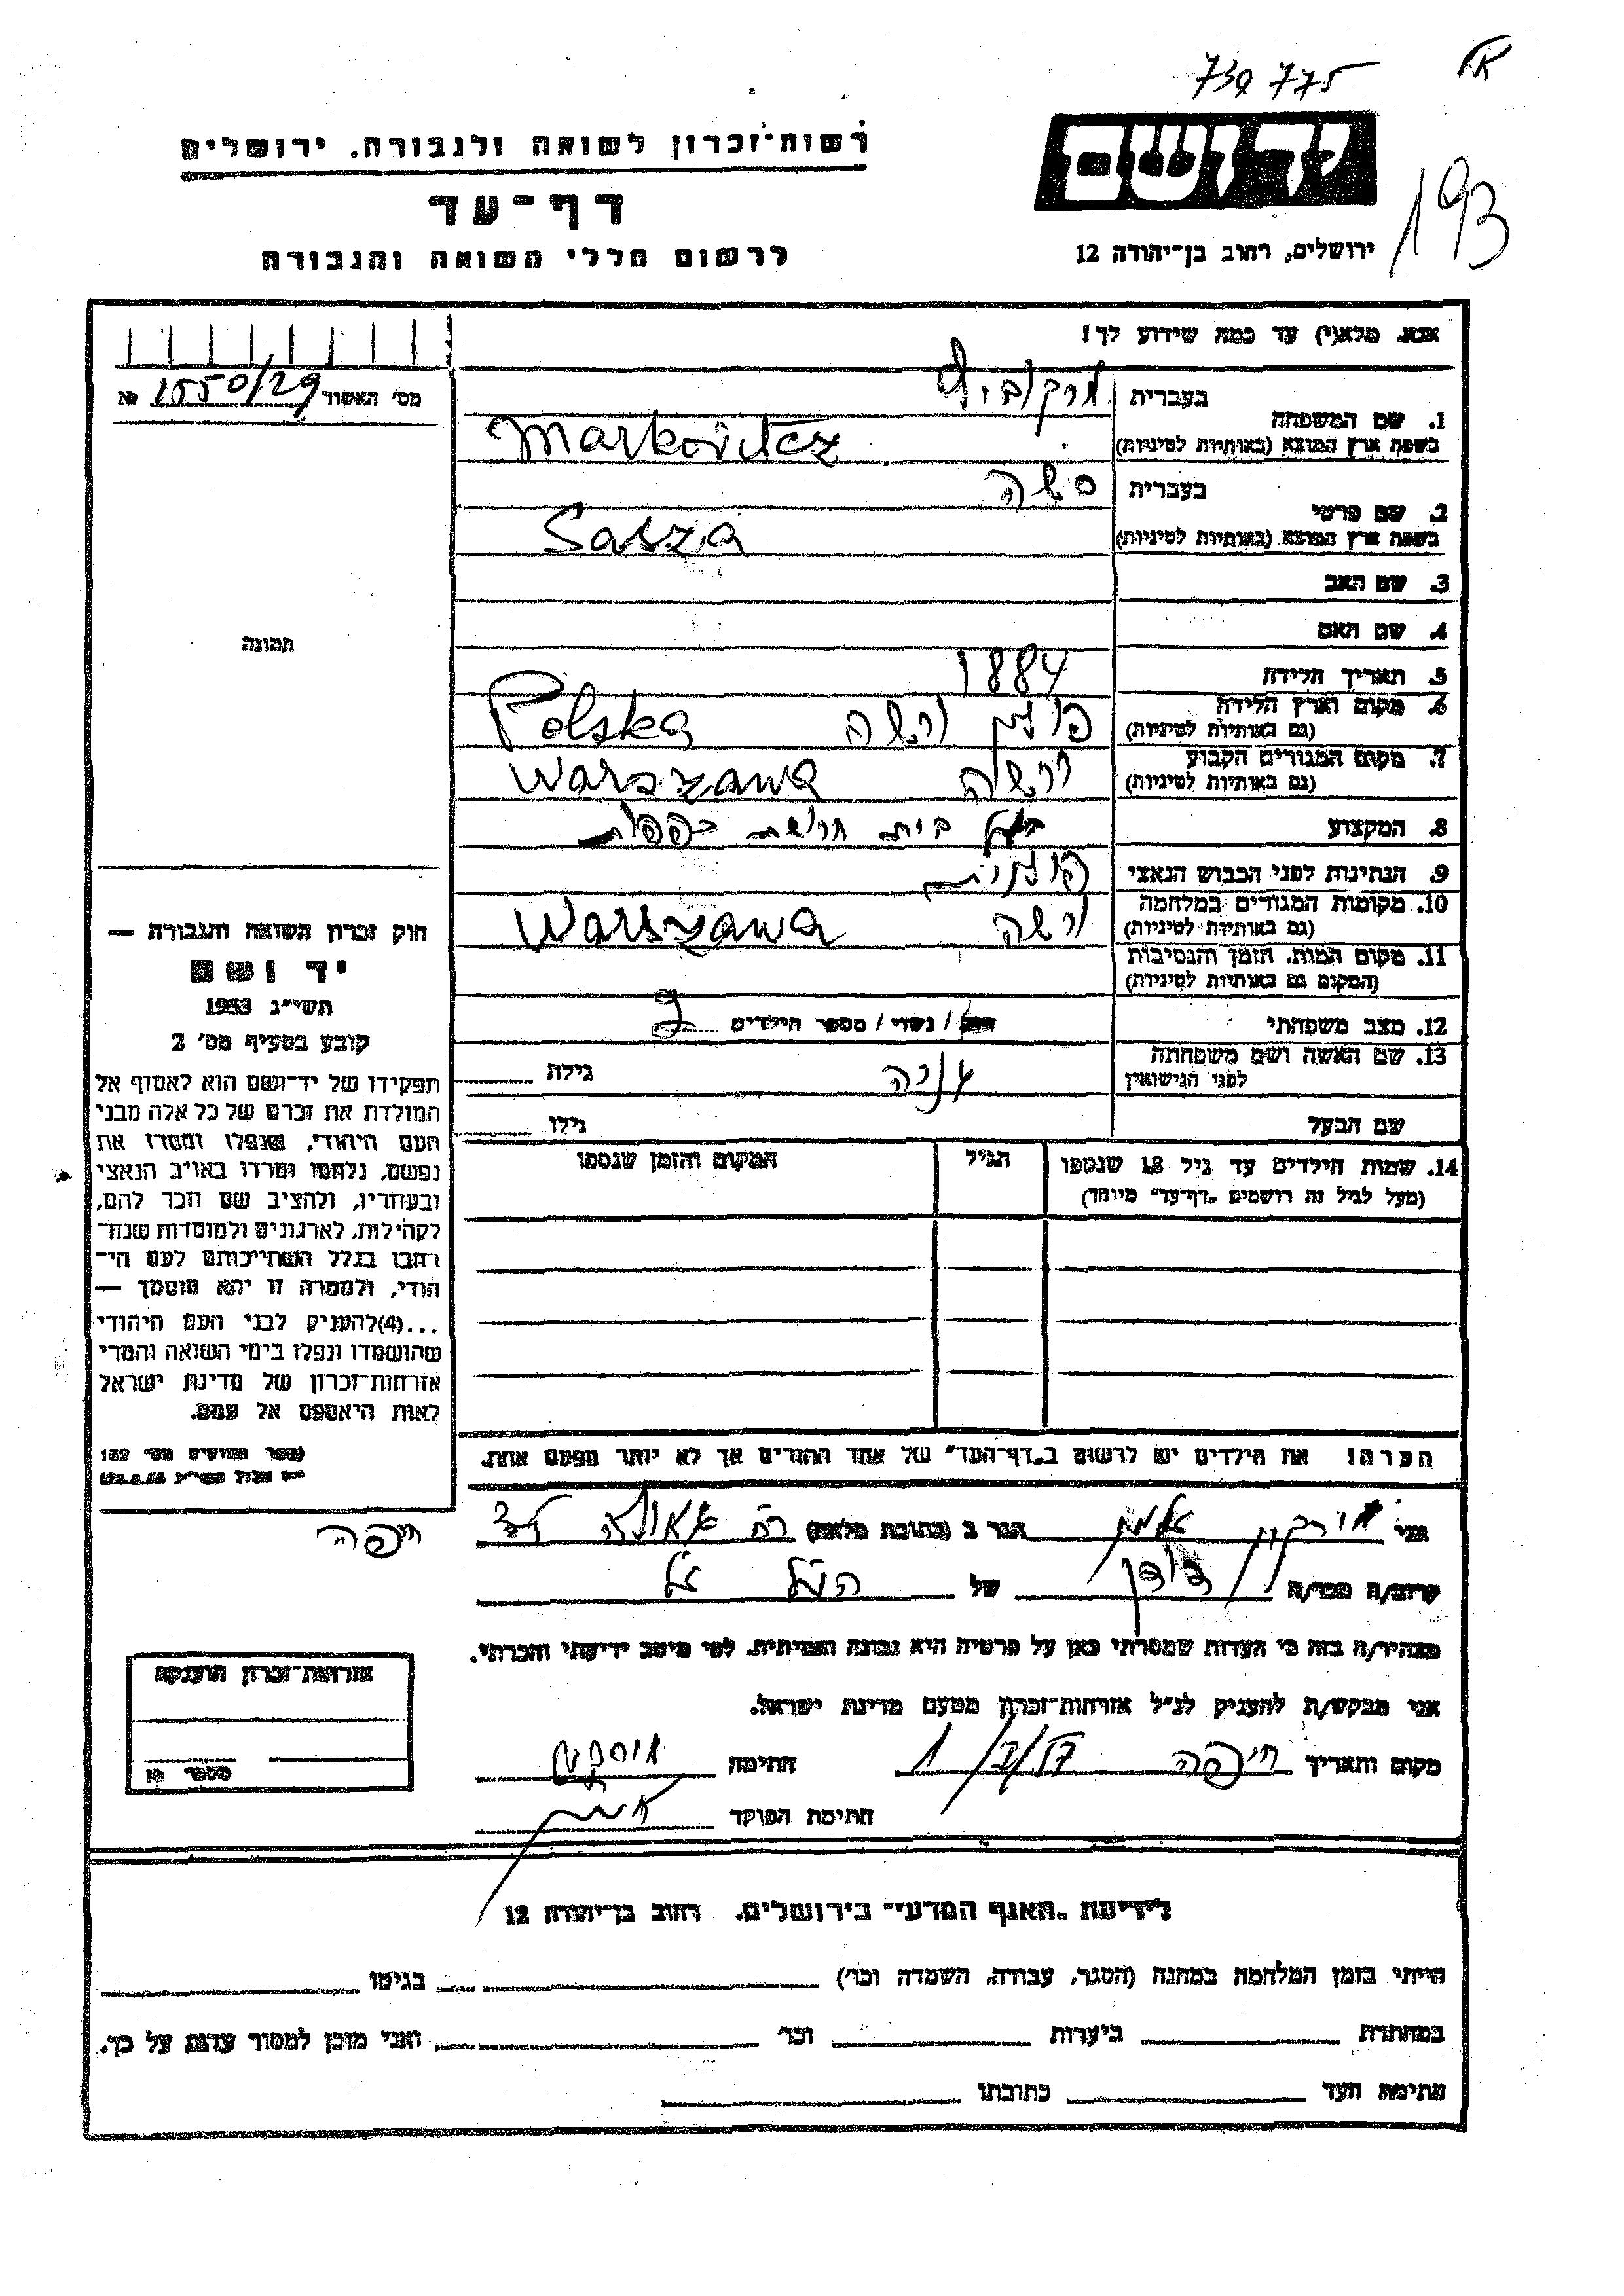 739775
193
רשות־זכרון לשואה ולגבורה, ירושלים
דף־עד
לרשום חללי השואה והגבורה
יד ושם
ירושלים, רחוב בן־יהודה 12
אנא, מלא(י) עד כמה שידוע לך!
מס׳ האשור № 1550/29
1. שם המשפחה
בעברית מרקוביץ
בשפת ארץ המוצא (באותיות לטיניות) Markovitcz
2. שם פרטי
בעברית סשה
בשפת ארץ המוצא (באותיות לטיניות) Sasza
3. שם האב
4. שם האם
5. תאריך הלידה 1884
6. מקום וארץ הלידה
(גם באותיות לטיניות) פולין ורשה Polska
7. מקום המגורים הקבוע
(גם באותיות לטיניות) ורשה Warszawa
8. המקצוע בעל בית חרושת
9. הנתינות לפני הכבוש הנאצי פולנית
10. מקומות המגורים במלחמה
(גם באותיות לטיניות) ורשה Warszawa
11. מקום המות, הזמן והנסיבות
(המקום גם באותיות לטיניות)
12. מצב משפחתי / נשוי / מספר הילדים
13. שם האשה ושם משפחתה
לפני הנישואין גילה
שם הבעל גילו
14. שמות הילדים עד גיל 18 שנספו
(מעל לגיל זה רושמים „דף־עד״ מיוחד)
הגיל
המקום והזמן שנספו
הערה! את הילדים יש לרשום ב„דף־העד״ של אחד ההורים אך לא יותר מפעם אחת.
תמונה
חוק זכרון השואה והגבורה —
יד ושם
תשי״ג 1953
קובע בסעיף מס׳ 2
תפקידו של יד־ושם הוא לאסוף אל
המולדת את זכרם של כל אלה מבני
העם היהודי, שנפלו ומסרו את
נפשם, נלחמו ומרדו באויב הנאצי
ובעוזריו, ולהציב שם וזכר להם,
לקהילות, לארגונים ולמוסדות שנח־
רבו בגלל השתייכותם לעם הי־
הודי, ולמטרה זו יהא מוסמך —
...(4)להעניק לבני העם היהודי
שהושמדו ונפלו בימי השואה והמרי
אזרחות־זכרון של מדינת ישראל
לאות היאספם אל עמם.
(ספר החוקים מס׳ 132
אני הגר ב (כתובת מלאה)
חיפה
קרוב/ה מכר/ה דודן של הנ״ל
מצהיר/ה בזה כי העדות שמסרתי כאן על פרטיה היא נכונה ואמיתית, לפי מיטב ידיעתי והכרתי.
אני מבקש/ת להעניק לנ״ל אזרחות־זכרון מטעם מדינת ישראל.
מקום ותאריך חיפה חתימה
חתימת הפוקד
אזרחות־זכרון הוענקה
מספר №
לידיעת „האגף המדעי״ בירושלים, רחוב בן־יהודה 12
הייתי בזמן המלחמה במחנה (הסגר, עבודה, השמדה וכו׳) בגיטו
במחתרת ביערות וכו׳ ואני מוכן למסור עדות על כך.
חתימת העד כתובתו